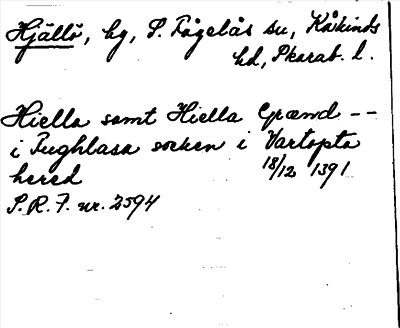 Hjällö, hg, S. Fågelås sn, Kåkinds
hd, Skarab. l.
Hiella samt Hiella Grænd --
i Fughlasa socken i Vartopta
hered 18/12 1391
S.R.F. nr. 2594